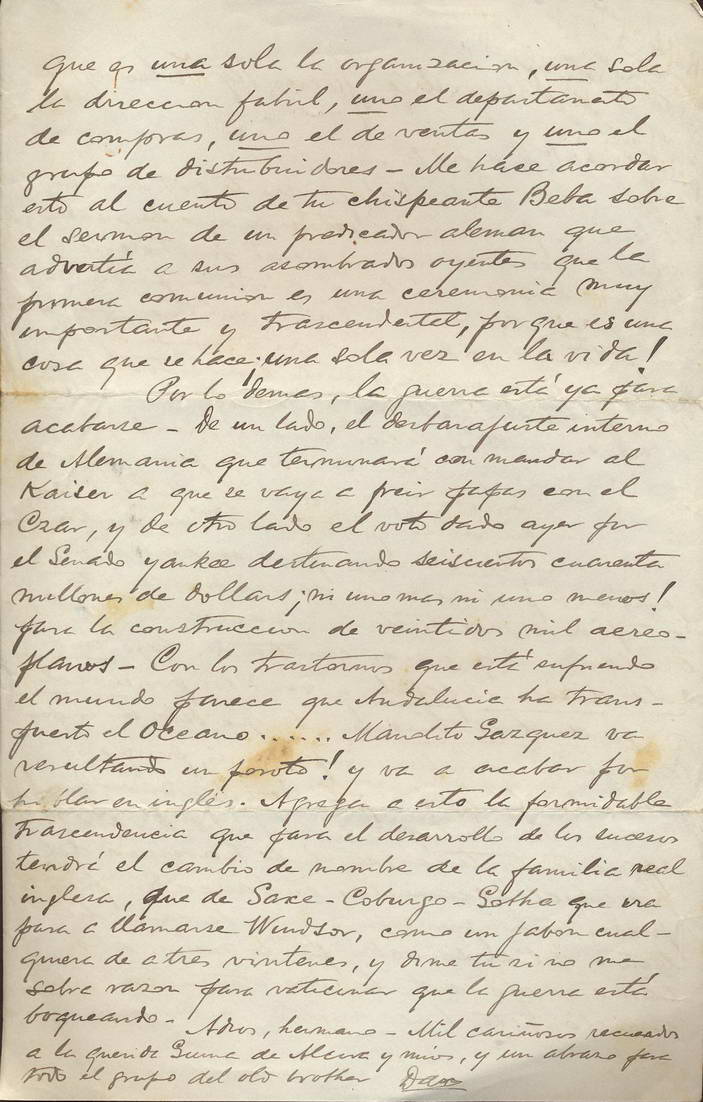 que es una sola la organizacion, una sola
la direccion fabril, uno el departamento
de compras, uno el de ventas y uno el
grupo de distribuidores - Me hace acordar
esto al cuento de tu chispeante Beba sobre
el sermon de un predicador aleman que
advertía a sus asombrados oyentes que la
primera comunion es una ceremonia muy
importante y trascendental, porque es una
cosa que se hace ¡una sola vez en la vida!
Por lo demas, la guerra está ya para
acabarse - De un lado, el desbarajuste interno
de Alemania que terminará con mandar al
Kaiser a que se vaya a freir papas con el
Czar, y de otro lado el voto dado ayer por
el Senado yankee destinando seiscientos cuarenta
millones de dollars, ¡ni uno mas ni uno menos!
para la construccion de veintidos mil aereo-
planos - Con los trastornos que está sufriendo
el mundo parece que Andalucia ha trans-
puesto el Oceano ...... Manolito Gazquez va
resultando un poroto! y va a acabar por
hablar en inglés. Agrega a esto la formidable
trascendencia que para el desarrollo de los sucesos
tendrá el cambio de nombre de la familia real
inglesa, que de Saxe-Coburgo-Gotha que era
pasa a llamarse Windsor, como un jabon cual-
quiera de a tres vintenes, y dime tú si no me
sobra razon para vaticinar que la guerra está
boqueando -
Adios, hermano - Mil cariñosos recuerdos
a la querida de y mios, y un abrazo para
todo el grupo del old brother